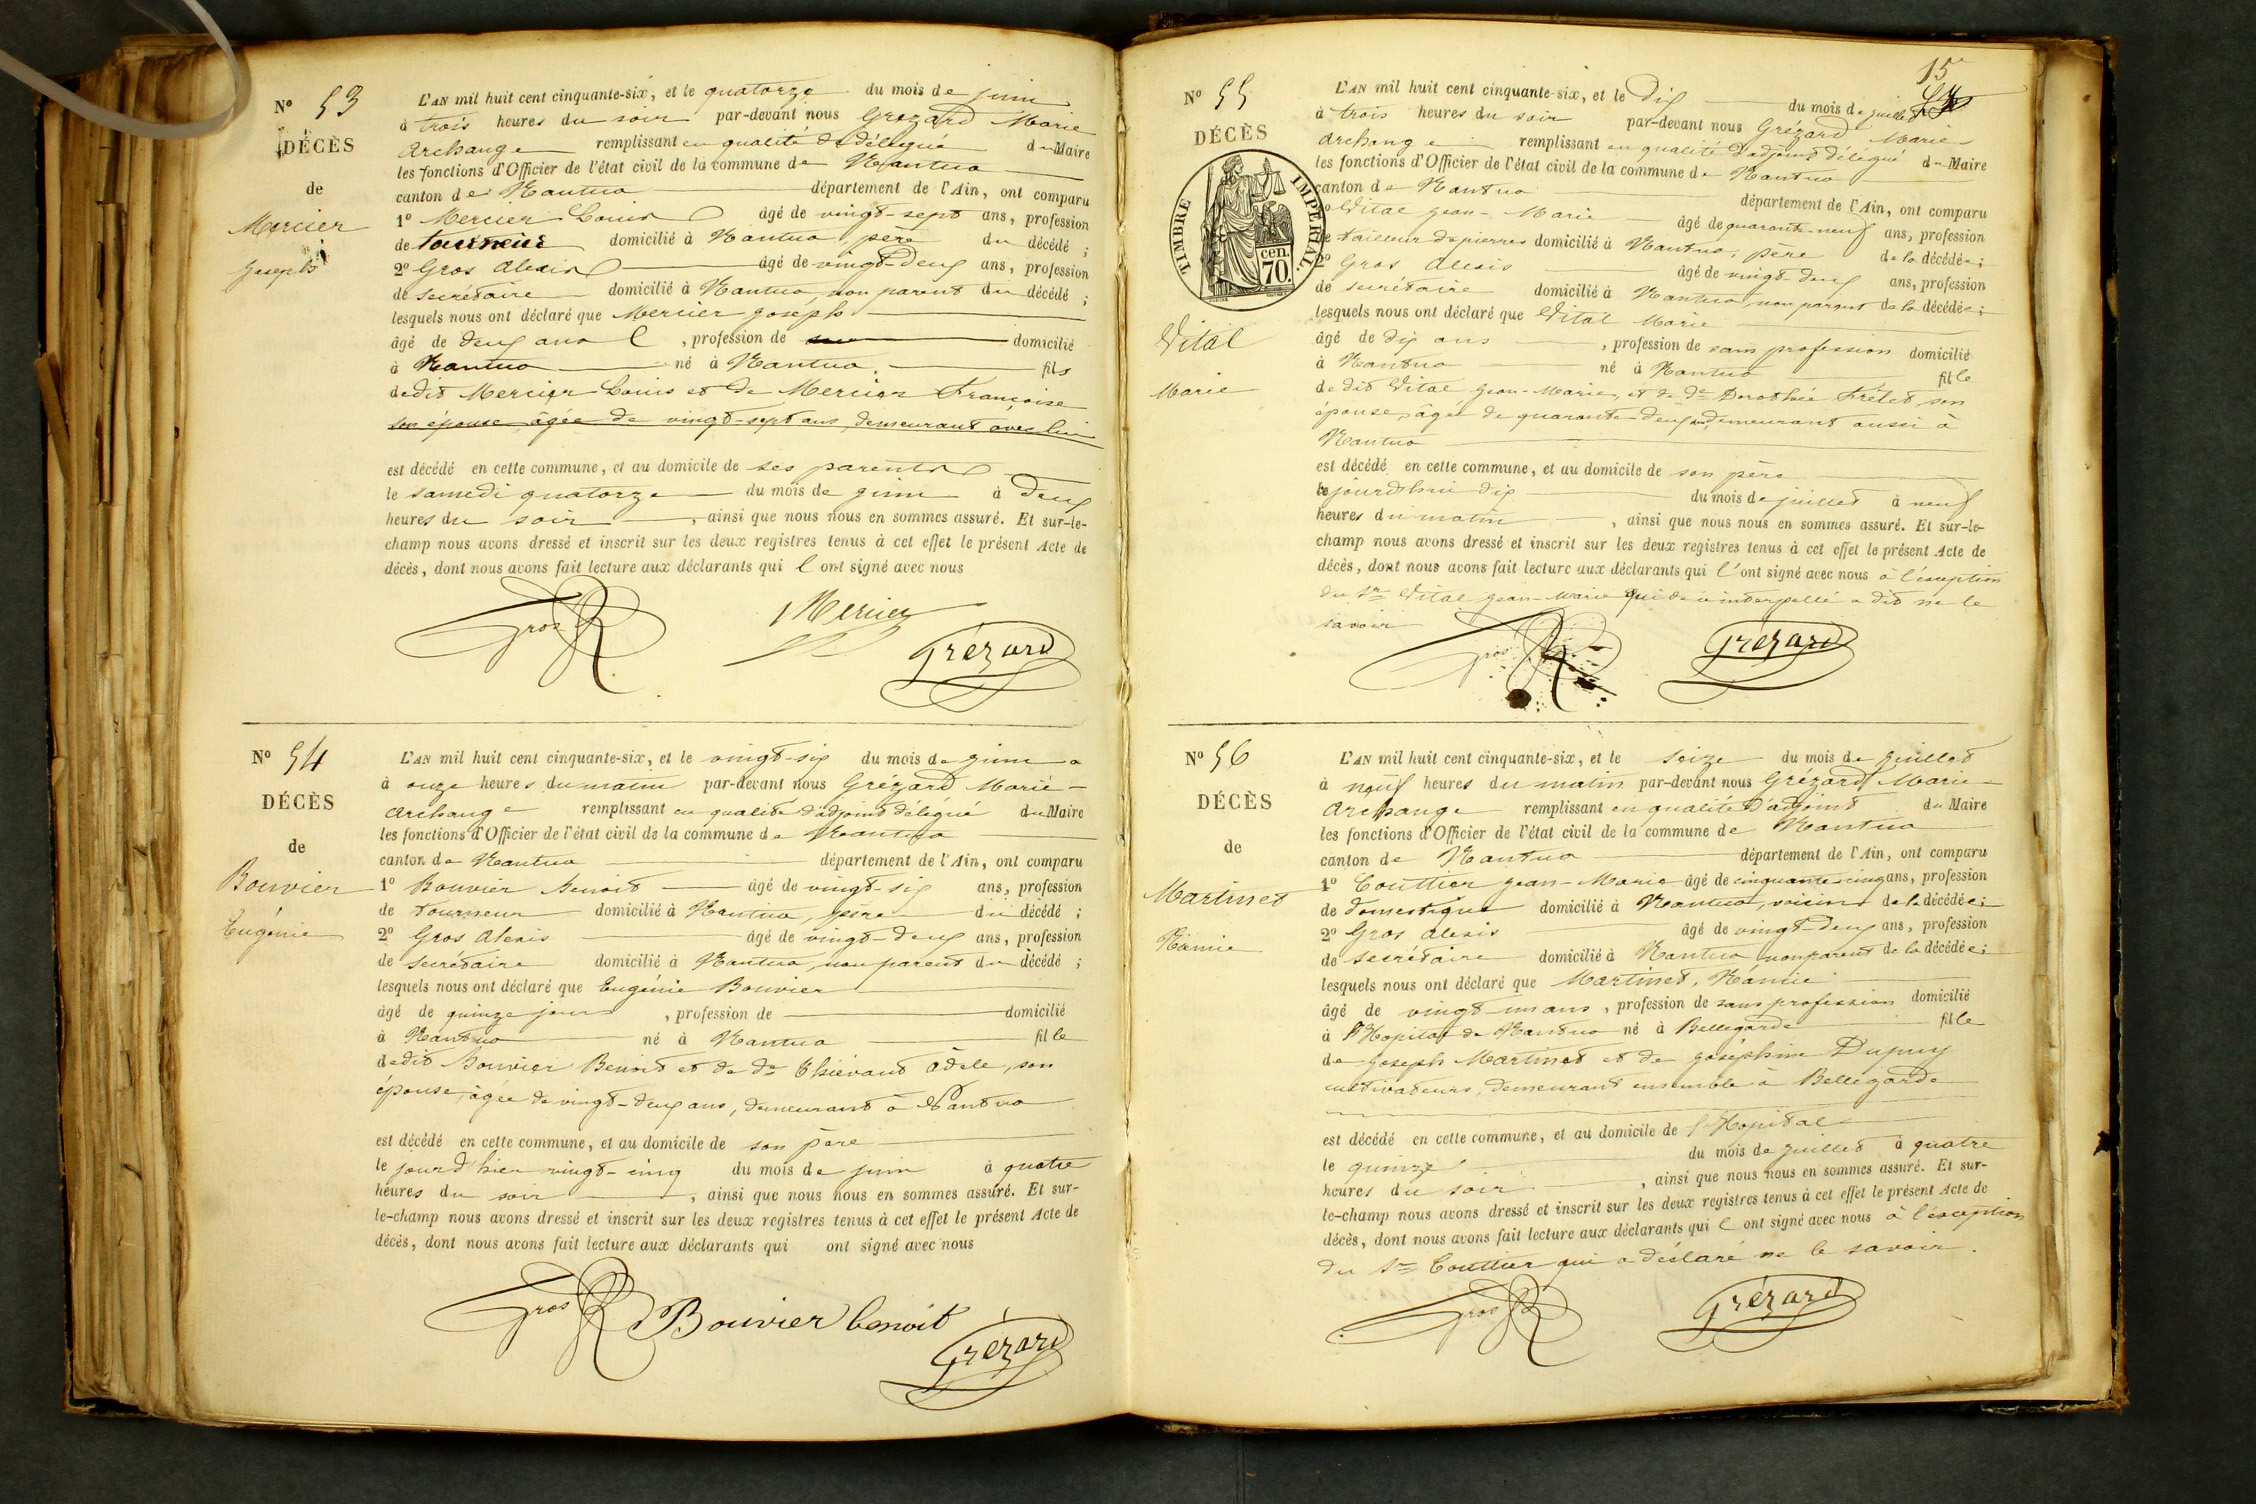 N° 53
DÉCÈS
de
Mercier
Joseph
L'AN mil huit cent cinquante-six, et le quatorze du mois de juin
à trois heures du soir par-devant nous Grézard Marie
Archange remplissant en qualité de délégué du Maire
les fonctions d'Officier de l'état civil de la commune de Nantua
canton de Nantua département de l'Ain, ont comparu
1° Mercier Louis âgé de vingt-sept ans, profession
de tourneur domicilié à Nantua, père du décédé ;
2° Gros Alexis âgé de vingt-deux ans, profession
de secrétaire domicilié à Nantua, non parent du décédé ;
lesquels nous ont déclaré que Mercier Joseph
âgé de deux ans , profession de domicilié
à Nantua né à Nantua fils
dedit Mercier Louis et de Mercier Françoise
son épouse, âgée de vingt-sept ans, demeurant avec lui
est décédé en cette commune, et au domicile de ses parents
le samedi quatorze du mois de juin à deux
heures du soir , ainsi que nous nous en sommes assuré. Et sur-le-
champ nous avons dressé et inscrit sur les deux registres tenus à cet effet le présent Acte de
décès, dont nous avons fait lecture aux déclarants qui l ont signé avec nous
Gros Mercier Grézard
N° 54
DÉCÈS
de
Bouvier
Eugénie
L'AN mil huit cent cinquante-six, et le vingt-six du mois de juin
à onze heures du matin par-devant nous Grézard Marie-
Archange remplissant en qualité d'adjoint délégué du Maire
les fonctions d'Officier de l'état civil de la commune de Nantua
canton de Nantua département de l'Ain, ont comparu
1° Bouvier Benoit âgé de vingt-six ans, profession
de tourneur domicilié à Nantua, père du décédé ;
2° Gros Alexis âgé de vingt-deux ans, profession
de secrétaire domicilié à Nantua, non parent du décédé ;
lesquels nous ont déclaré que Eugénie Bouvier
âgé de quinze jours , profession de domicilié
à Nantua né à Nantua fille
dedit Bouvier Benoit et de de Thiévant Adèle, son
épouse, âgée de vingt-deux ans, demeurant à Nantua
est décédé en cette commune, et au domicile de son père
le jour d'hier vingt-cinq du mois de juin à quatre
heures du soir , ainsi que nous nous en sommes assuré. Et sur-
le-champ nous avons dressé et inscrit sur les deux registres tenus à cet effet le présent Acte de
décès, dont nous avons fait lecture aux déclarants qui ont signé avec nous
Gros Bouvier benoit
Grézard
15
N° 55
DÉCÈS
TIMBRE IMPÉRIAL.
70 cen.
Vital
Marie
L'AN mil huit cent cinquante-six, et le dix du mois de juillet
à trois heures du soir par-devant nous Grézard Marie-
Archange remplissant en qualité d'adjoint délégué du Maire
les fonctions d'Officier de l'état civil de la commune de Nantua
canton de Nantua département de l'Ain, ont comparu
Vital Jean-Marie âgé de quarante-neuf ans, profession
de tailleur de pierres domicilié à Nantua, père de la décédée ;
2° Gros Alexis âgé de vingt-deux ans, profession
de secrétaire domicilié à Nantua, non parent de la décédée ;
lesquels nous ont déclaré que Vital Marie
âgé de dix ans , profession de sans profession domicilié
à Nantua né à Nantua fille
de dit Vital Jean-Marie, et de de Dorothée Frélet son
épouse, âgée de quarante-deux ans, demeurant aussi à
Nantua
est décédé en cette commune, et au domicile de son père
le jourd'hui dix du mois de juillet à neuf
heures du matin , ainsi que nous nous en sommes assuré. Et sur-le-
champ nous avons dressé et inscrit sur les deux registres tenus à cet effet le présent Acte de
décès, dont nous avons fait lecture aux déclarants qui l'ont signé avec nous à l'exception
du Sr Vital Jean-Marie qui de ce interpellé a dit ne le
savoir
Gros Grézard
N° 56
DÉCÈS
de
Martinet
Namie
L'AN mil huit cent cinquante-six, et le seize du mois de juillet
à neuf heures du matin par-devant nous Grézard Marie-
Archange remplissant en qualité d'adjoint du Maire
les fonctions d'Officier de l'état civil de la commune de Nantua
canton de Nantua département de l'Ain, ont comparu
1° Couttier Jean-Marie âgé de cinquante-cinq ans, profession
de domestique domicilié à Nantua, voisin de la décédée ;
2° Gros Alexis âgé de vingt-deux ans, profession
de secrétaire domicilié à Nantua non parent de la décédée ;
lesquels nous ont déclaré que Martinet, Namie
âgé de vingt-un ans , profession de sans profession domicilié
à l'Hopital de Nantua né à Bellegarde fille
de Joseph Martinet et de Joséphine Dupuy
cultivateurs, demeurant ensemble à Bellegarde
est décédé en cette commune, et au domicile de l'Hopital
le quinze du mois de juillet à quatre
heures du soir , ainsi que nous nous en sommes assuré. Et sur-
le-champ nous avons dressé et inscrit sur les deux registres tenus à cet effet le présent Acte de
décès, dont nous avons fait lecture aux déclarants qui l ont signé avec nous à l'exception
du Sr Couttier qui a déclaré ne le savoir.
Gros Grézard